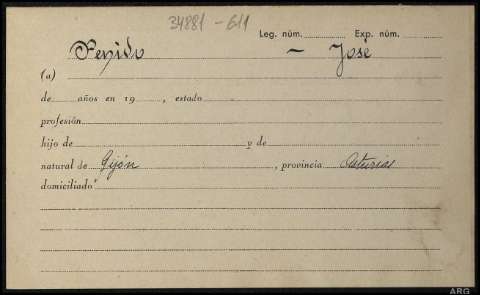 34881 - 611
Leg. núm. Exp. núm.
Penido — José
(a)
de años en 19 , estado
profesión
hijo de y de
natural de Gijón , provincia Asturias
domiciliado
ARG